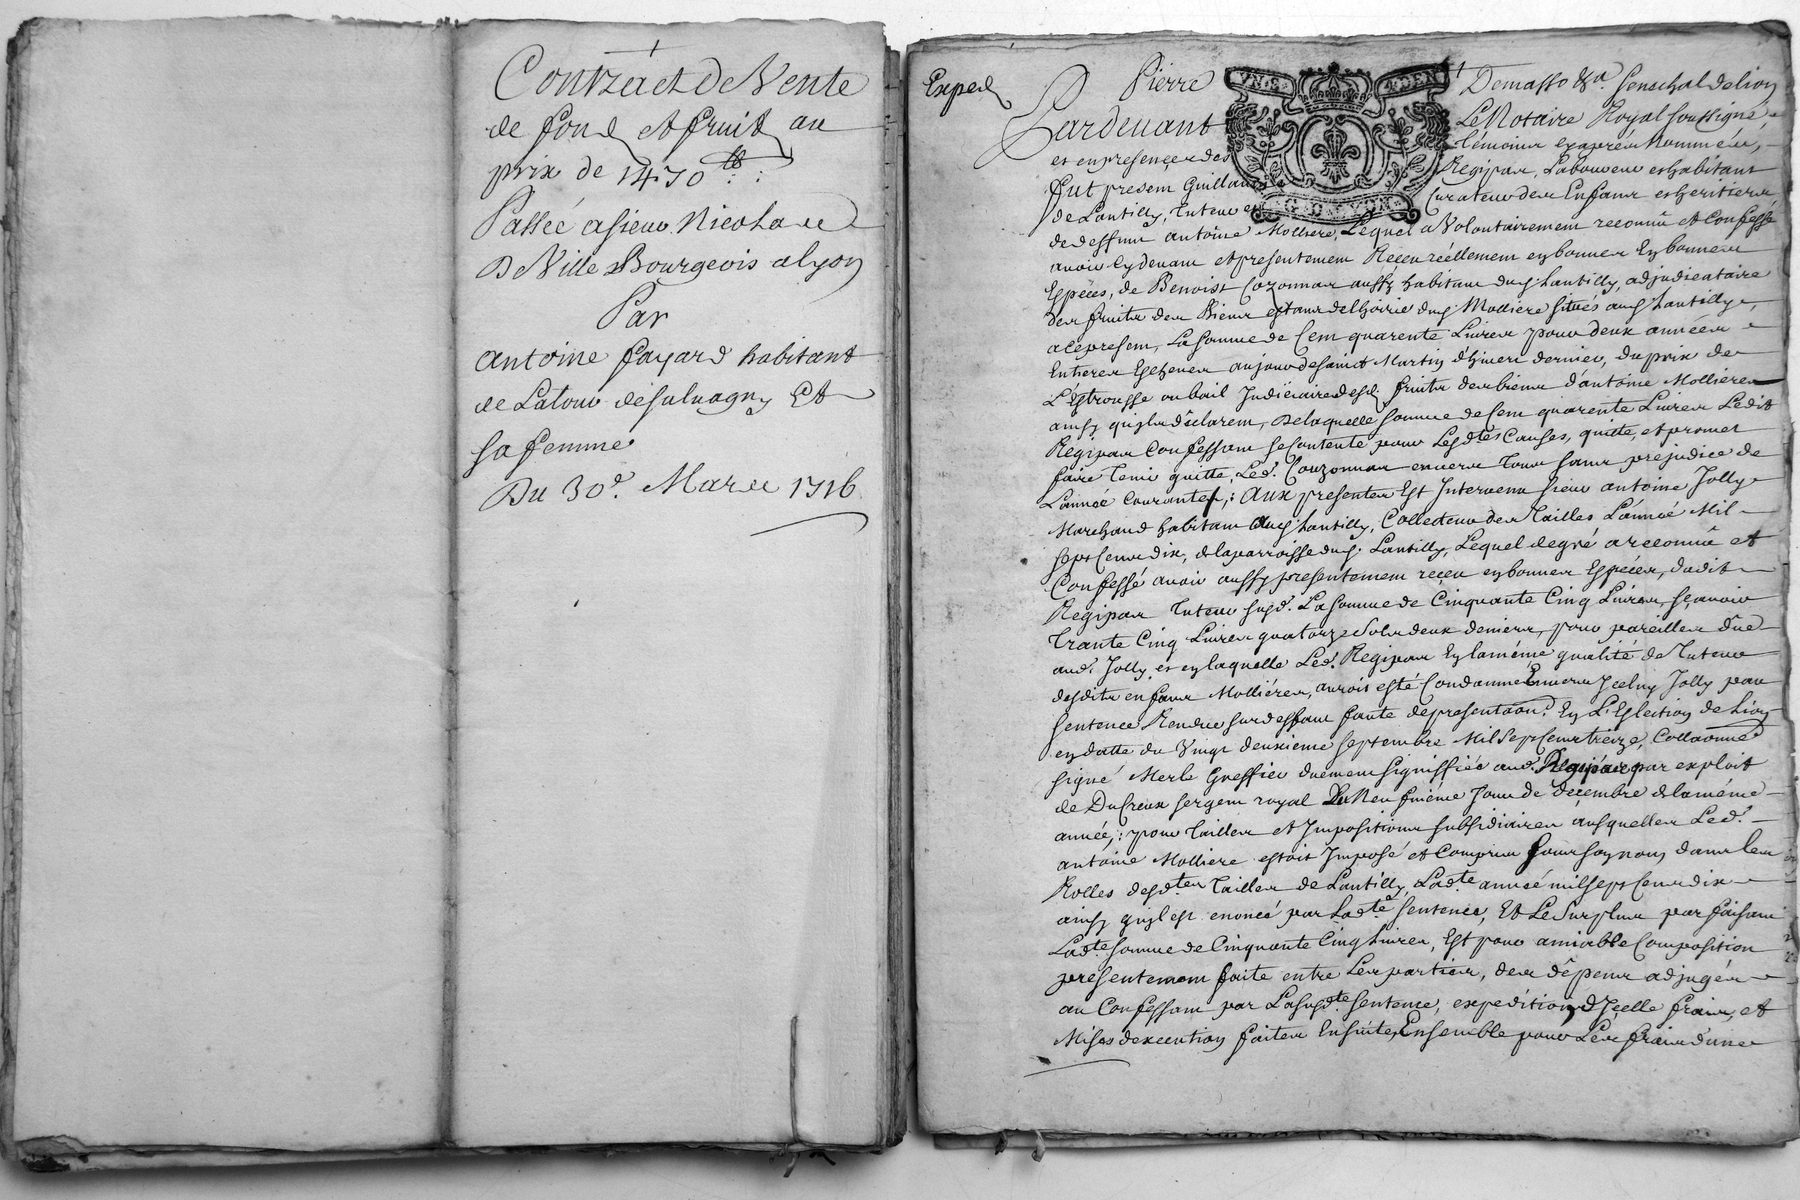 Contract de Vente
de fond et fruit au
prix de 1470 ᵗᵗ
Passée a sieur Nicolas
De Ville Bourgeois a lyon
Par
antoine fayard habitant
de Latour desalvagny Et
sa femme
Du 30e. Mars 1716
Exped
Pierre Demasso &a. Senechal de lion
Pardevant Le Notaire Royal soussigné
et en presence des témoins exaprés Nommés,
fut present Guillaume Regipas, Laboureur et habitant
de Lantilly, Tuteur et Curateur des Enfans et heritiers
de deffunt antoine Molliere, Lequel a Volontairement reconnû et Confessé
avoir Cydevant et presentement Receu réellement en bonnes
Espéces, de Benoist Cozonnas aussy habitant dud Lantilly, adjudicataire
des fruits des Biens estans de l'hoirie dud Molliere situés aud Lantilly,
acepresent, La somme de Cent quarente Livres pour deux années
Entieres Escheues au jour de saint Martin d'hiver dernier, du prix de
L'Estrousse ou bail Judiciaire desd. fruits des biens d'antoine Molliere
ainsy quils déclarent, De laquelle somme de Cent quarente Livres Ledit
Regipas Confessant se Contente pour Lesdtes Causes, quitte, et promet
faire tenir quitte Led. Couzonnas envers tous sans prejudice de
L'année Courante; Aux presentes Est Intervenu sieur antoine Jolly
Marchand habitant dud Lantilly, Collecteur des Tailles L'année Mil
sept Cens dix, de la parroisse dud. Lantilly, Lequel de gré a reconnû et
Confessé avoir aussy presentement receu en bonnes Espéces, dudit
Regipas Tuteur susd. La somme de Cinquante Cinq Livres, sçavoir
Trante Cinq Livres quatorze sols deux deniers, pour pareilles dûe
aud. Jolly et en laquelle Led. Regipas En la méme qualité de Tuteur
desdits enfans Molliéres, auroit esté Condamné Envers Icelluy Jolly par
sentence Rendue sur deffaut faute de presentaon. En L'Eslection de Lion
en datte du Vingt deuxieme septembre Mil Sept Cens treize, Collaonné
signé Merle Greffier duement signiffiée aud. Regipas par exploit
de Ducreux sergent royal Du Neufviéme Jour de décembre de la méme
année; pour Tailles et Impositions subsidiaires ausquelles Led.
antoine Molliere estoit Imposé et Compris sous son nom dans les
Rolles desdtes Tailles de Lantilly, Ladte année mil sept Cens dix
ainsy quil est enoncé par Ladte sentence, Et Le Surplus parfaisant
Ladte somme de Cinquante Cinq Livres, Est pour amiable Composition
presentement faite entre Les parties, des dépens adjugés
au Confessant par La susdte sentence, expedition d'Icelle frais, et
Mises dexecution faites Ensuite, Ensemble pour Les frais d'une